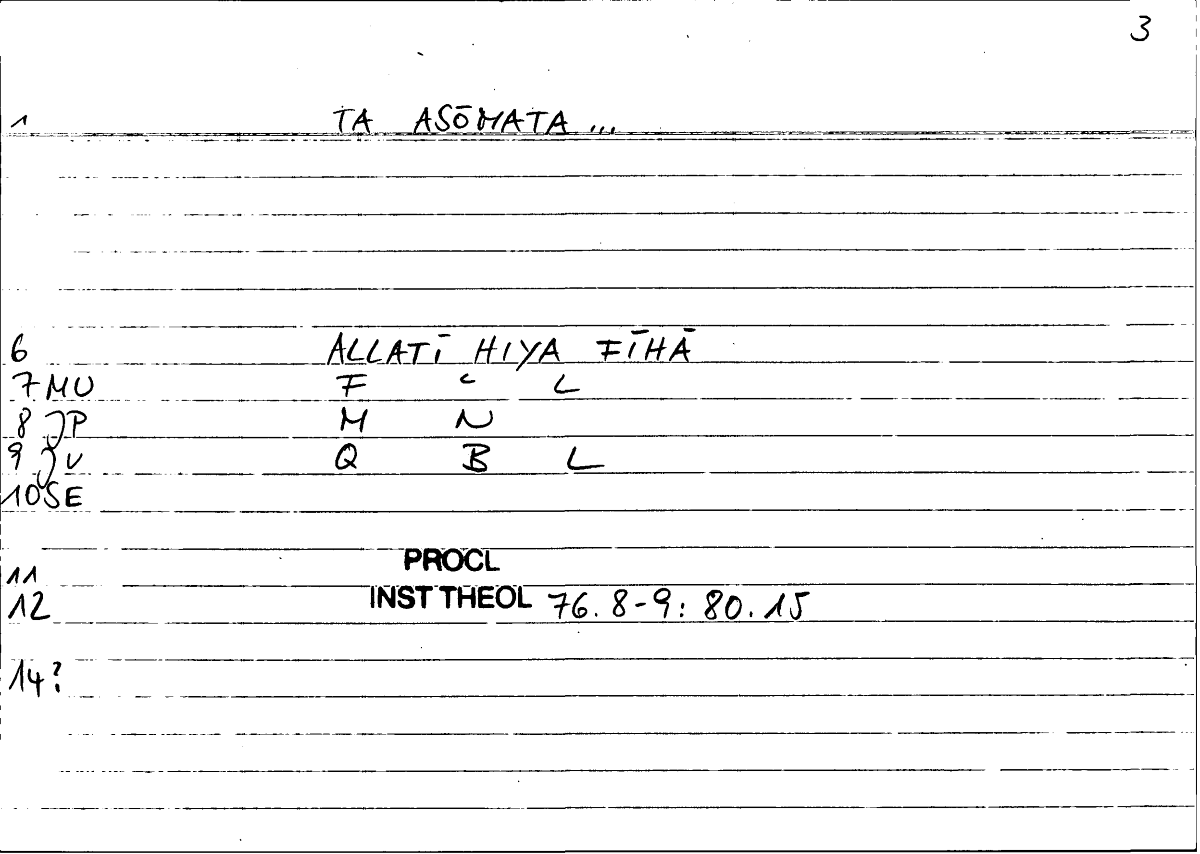 3
1 TA ASŌMATA ...
6 ALLATĪ HIYA FĪHĀ
7 MU F ʿ L
8 JP M N
9 JU Q B L
10 SE
11 PROCL
12 INST THEOL 76.8-9: 80.15
14?